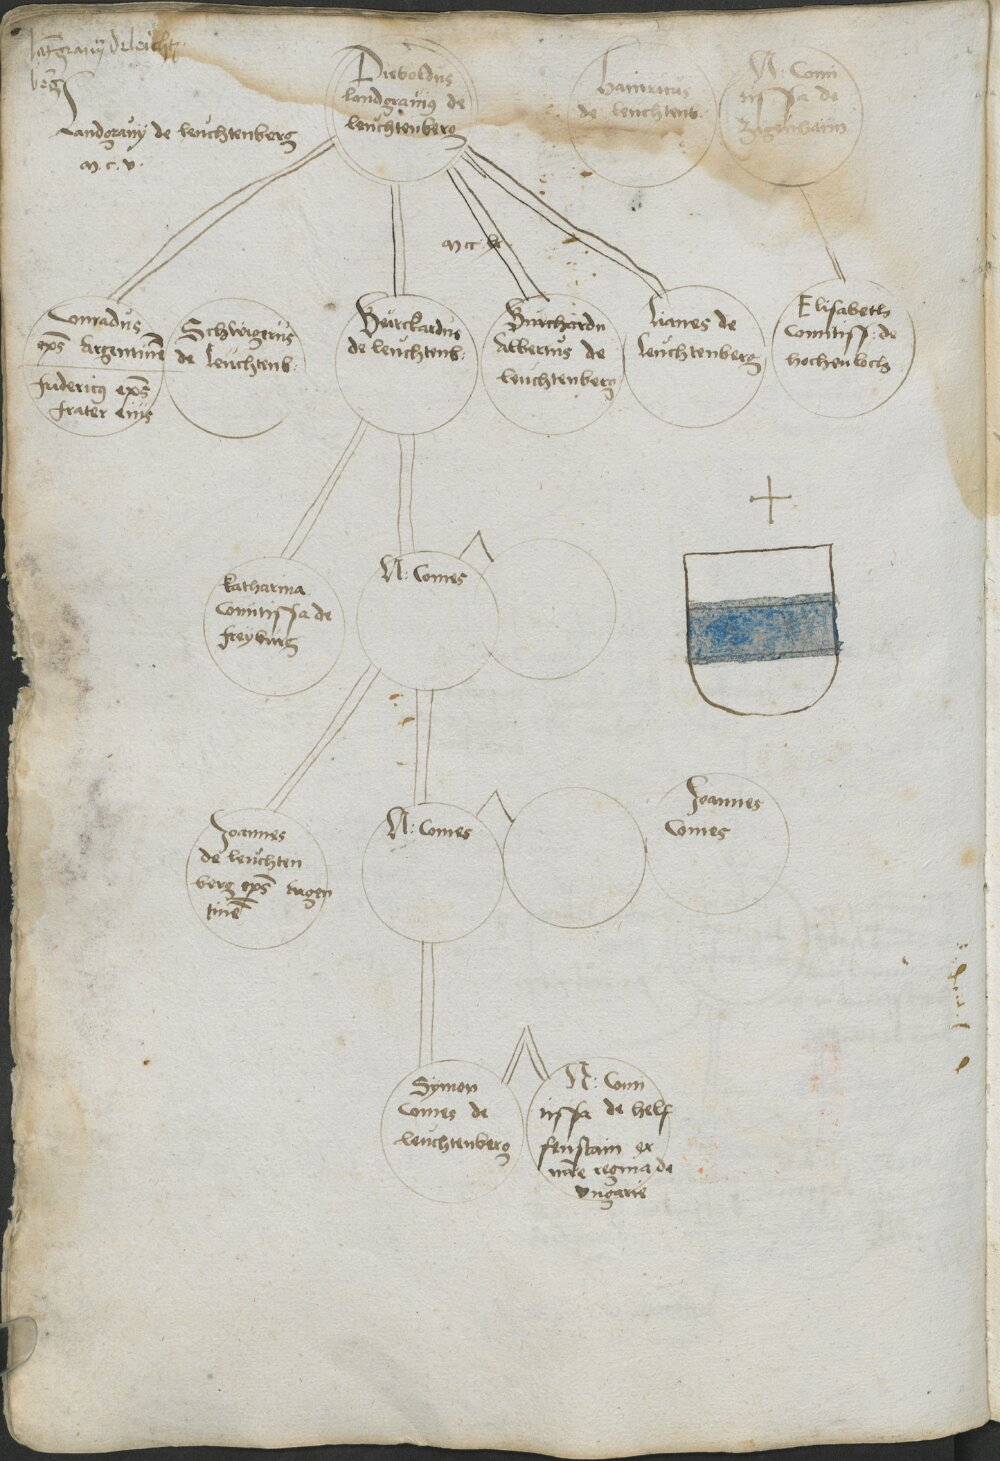 Landgravij de leücht
berg
Landgravij de leuchtenberg
M. c. v.
Dieboldus
landgravi9 de
leuchtenberg
Hainricus
de leuchtenb.
N. Comi
tissa de
Zigenhaim
Mcc
Conradus
eps Argentinen
fridericus eps
frater eius
Schwigerus
de leuchtenb.
Burckardus
de leuchtenb.
Burchardus
Albertus de
leuchtenberg
de
leuchtenberg
Elisabeth
Comitiss. de
hochenloch
Katharina
Comitissa de
freyburg
N. Comes
Joannes
de leuchten
berg eps Argen
tinen
N. Comes
Joannes
Comes
Symon
Comes de
leuchtenberg
N. Com
tissa de helf
fenstain ex
matre regina de
Vngarie